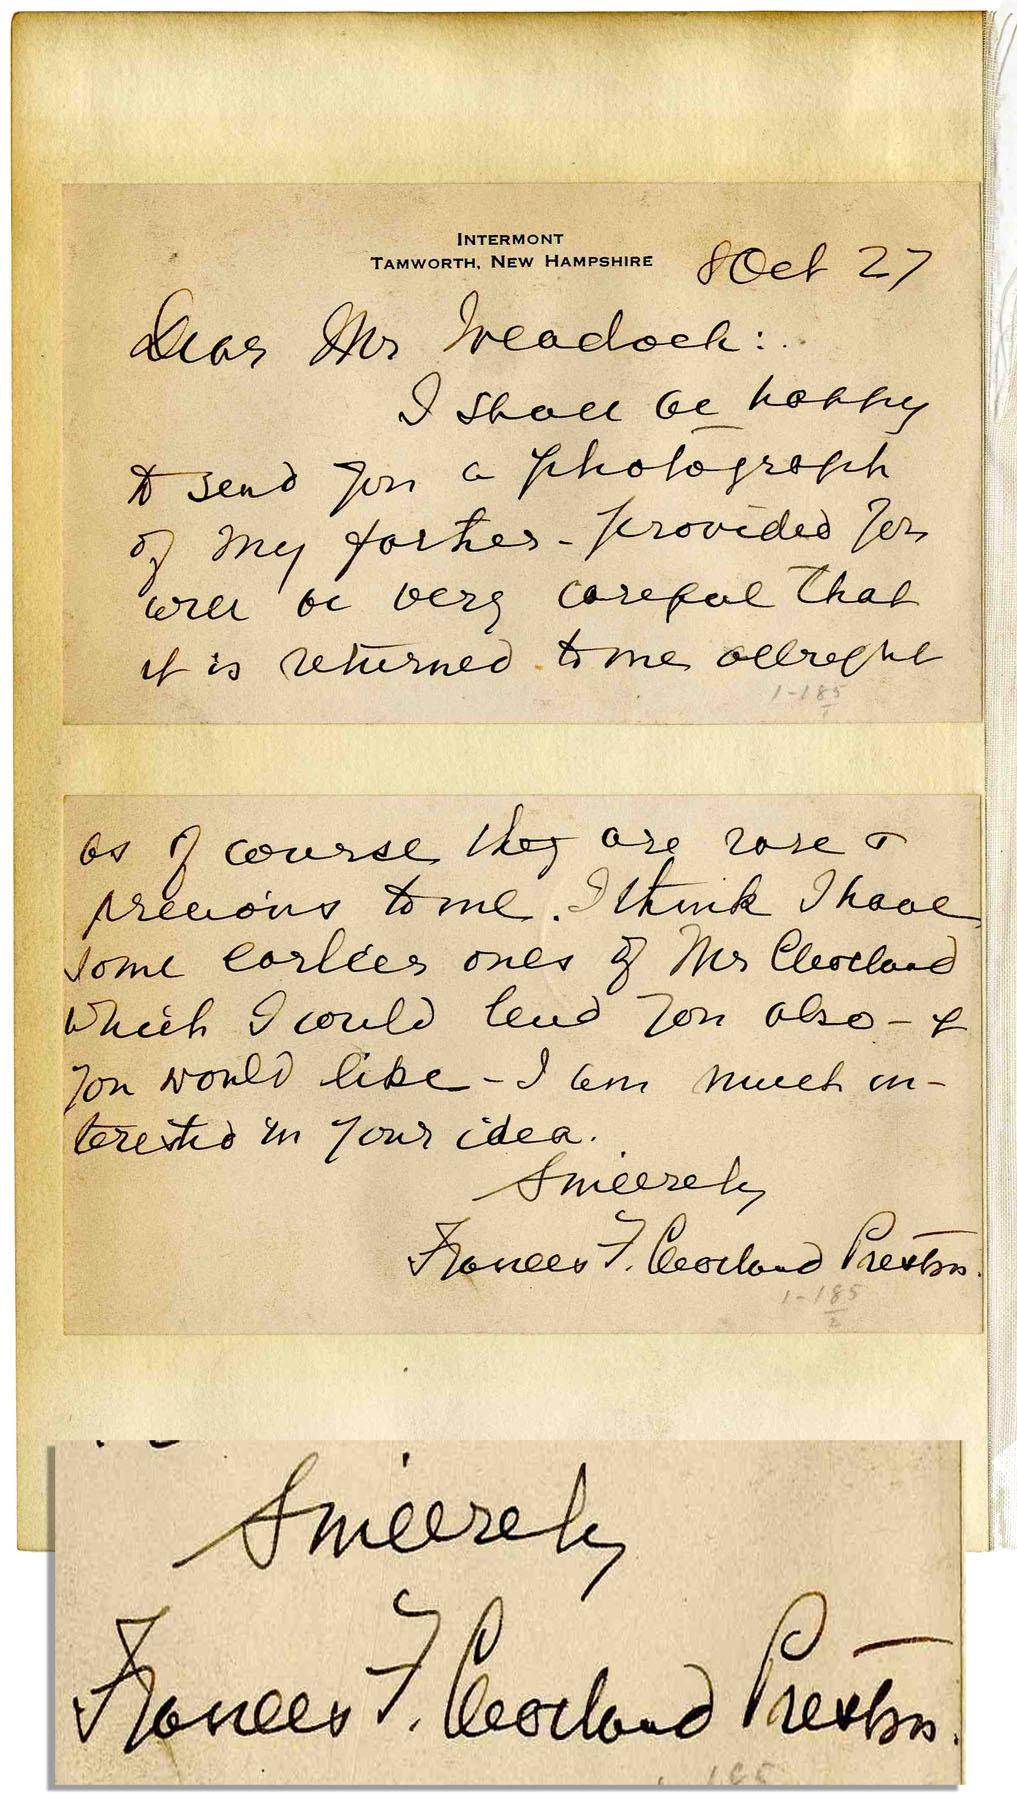 INTERMONT
TAMWORTH, NEW HAMPSHIRE
8 Oct 27
Dear Mr Weadock:
I shall be happy
to send you a photograph
of my father - provided you
will be very careful that
it is returned to me allright
1-185
1
as of course they are rare &
precious to me. I think I have
some earlier ones of Mr Cleveland
which I could lend you also - if
you would like - I am much in-
terested in your idea.
Sincerely
Frances F. Cleveland Preston.
1-185
2
Sincerely
Frances F. Cleveland Preston.
1-185